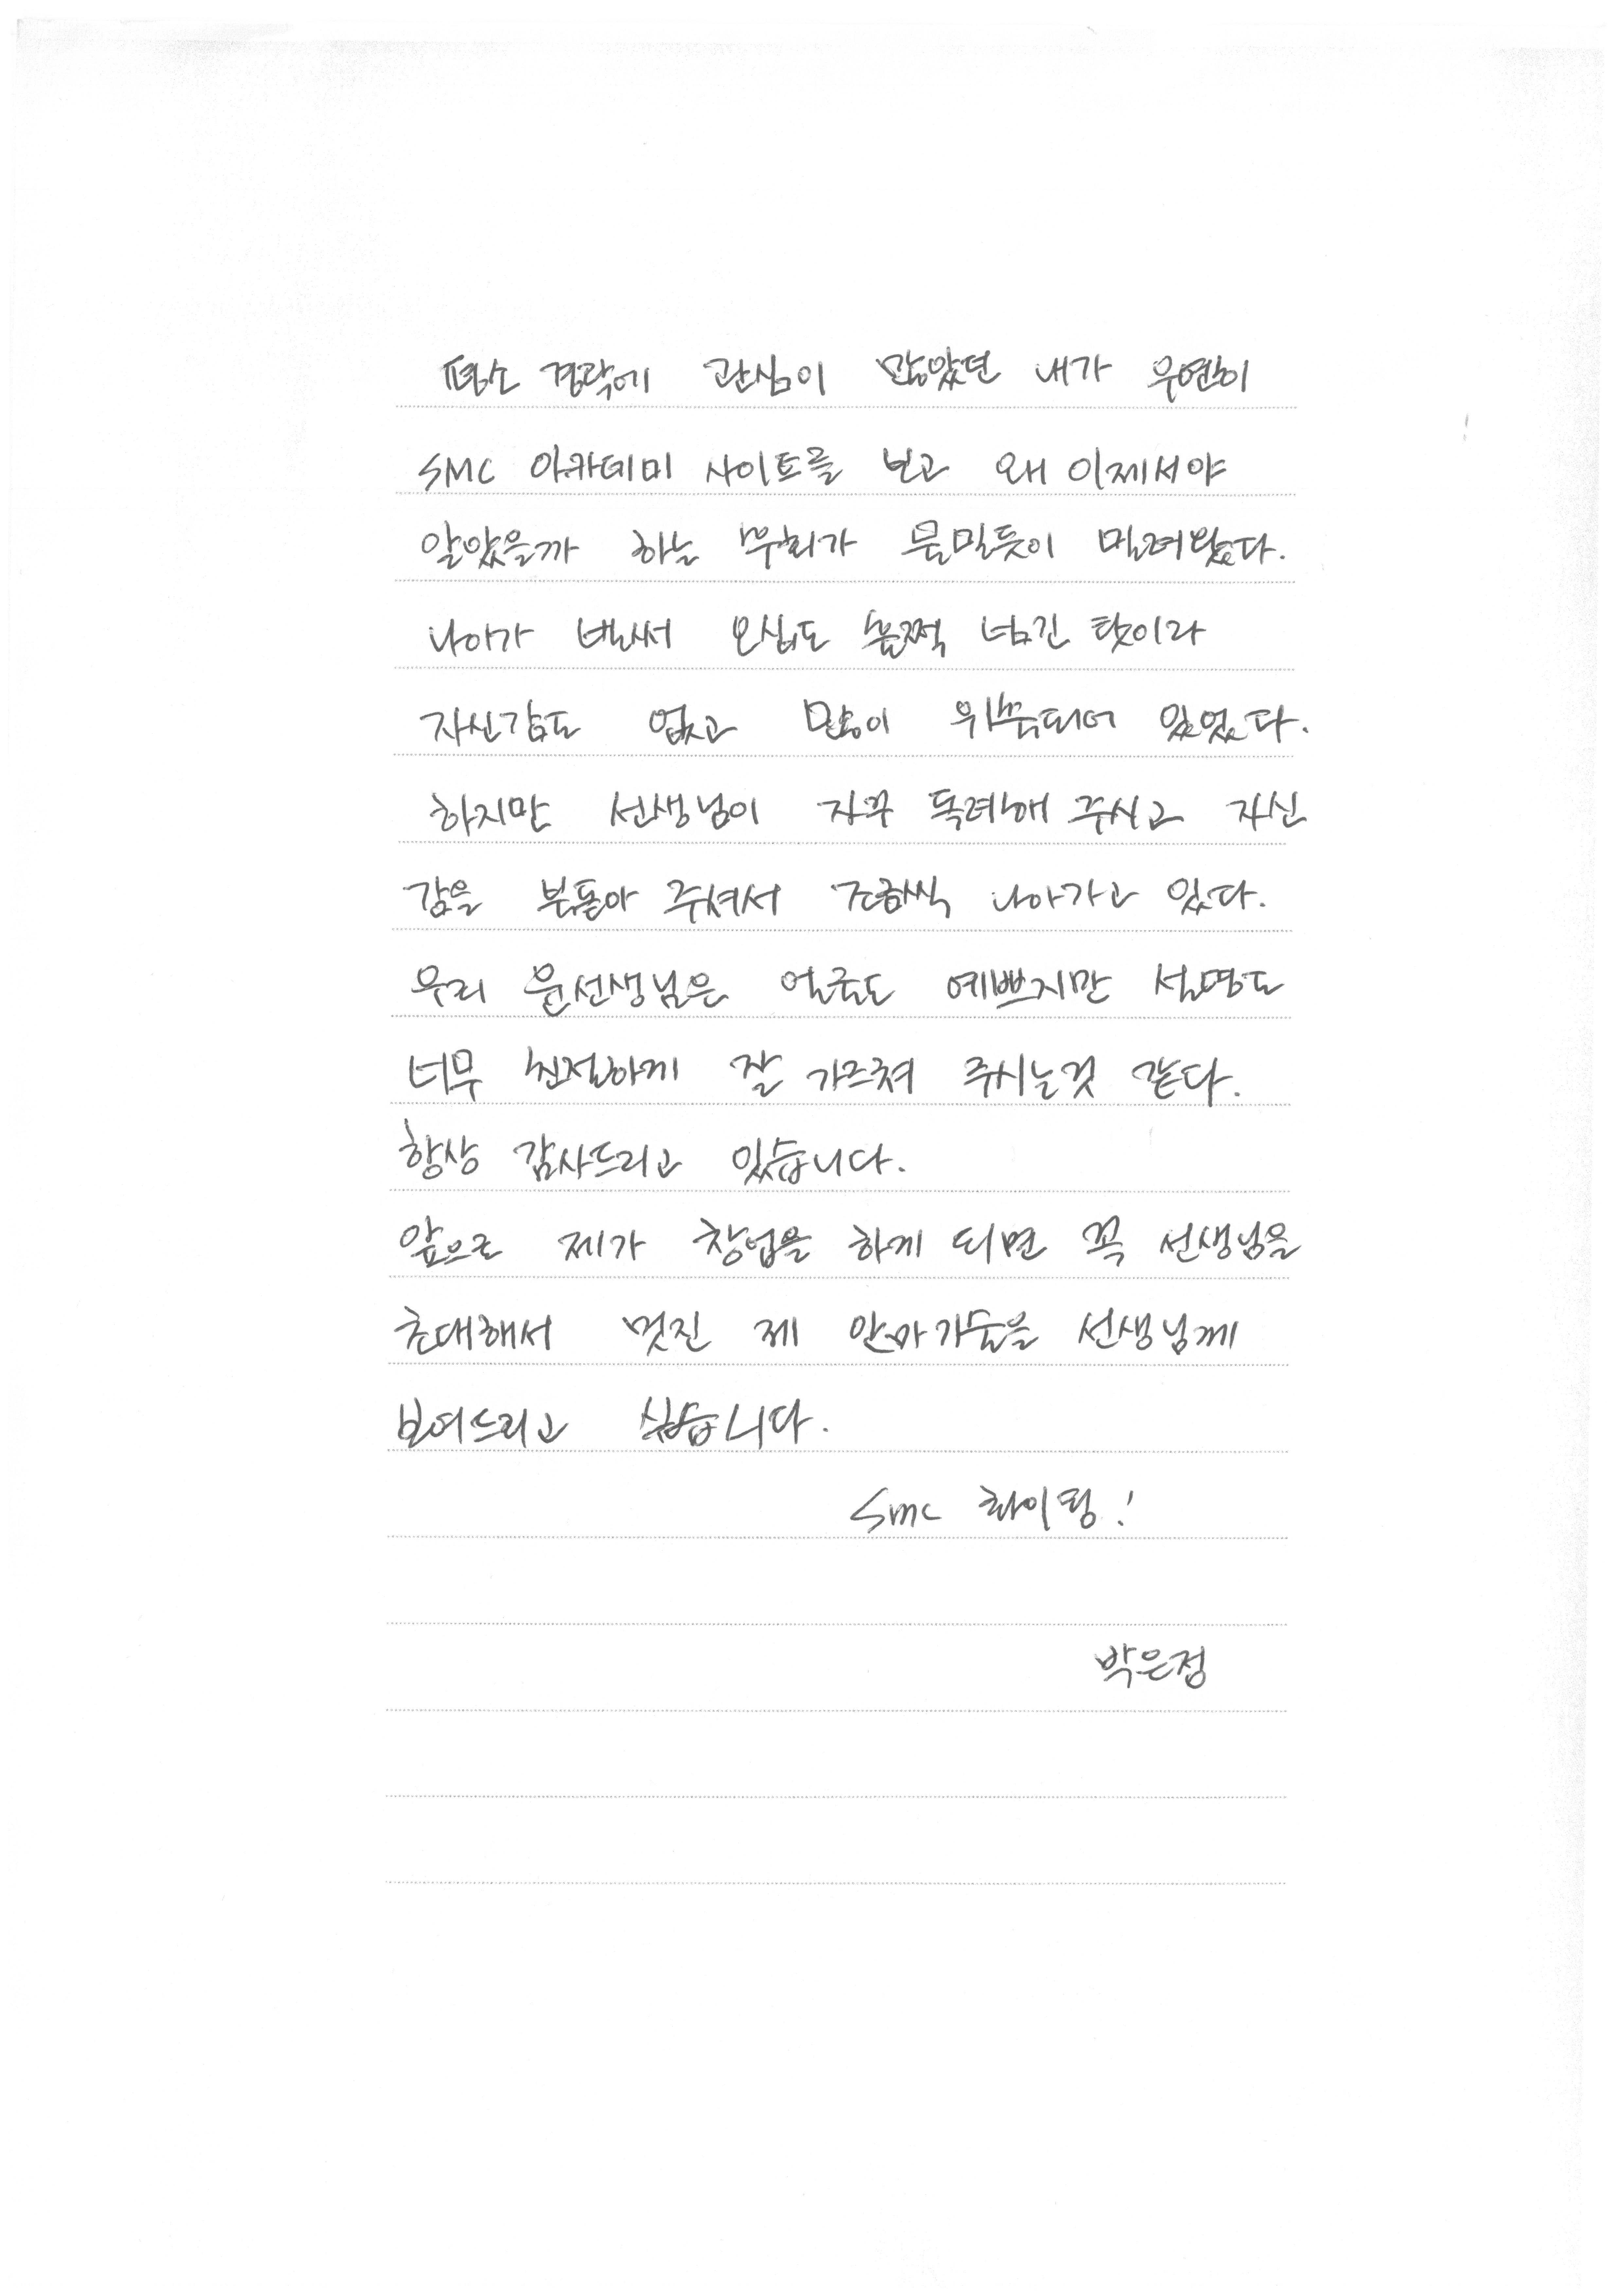 평소 경락에 관심이 많았던 내가 우연히
SMC 아카데미 사이트를 보고 왜 이제서야
알았을까 하는 후회가 물밀듯이 밀려왔다.
나이가 벌써 오십도 훌쩍 넘긴 탓이라
자신감도 없고 많이 위축되어 있었다.
하지만 선생님이 자꾸 독려해 주시고 자신
감을 북돋아 주셔서 조금씩 나아가고 있다.
우리 윤선생님은 얼굴도 예쁘지만 설명도
너무 친절하게 잘 가르쳐 주시는것 같다.
항상 감사드리고 있습니다.
앞으로 제가 창업을 하게 되면 꼭 선생님을
초대해서 멋진 제 안마기술을 선생님께
보여드리고 싶습니다.
Smc 화이팅!
박은정